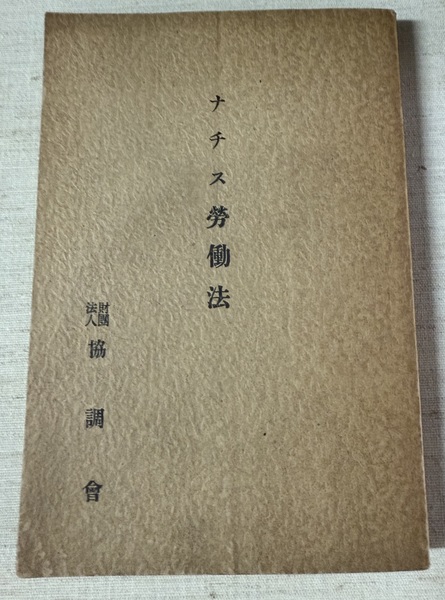 ナチス勞働法
財團法人
協調會